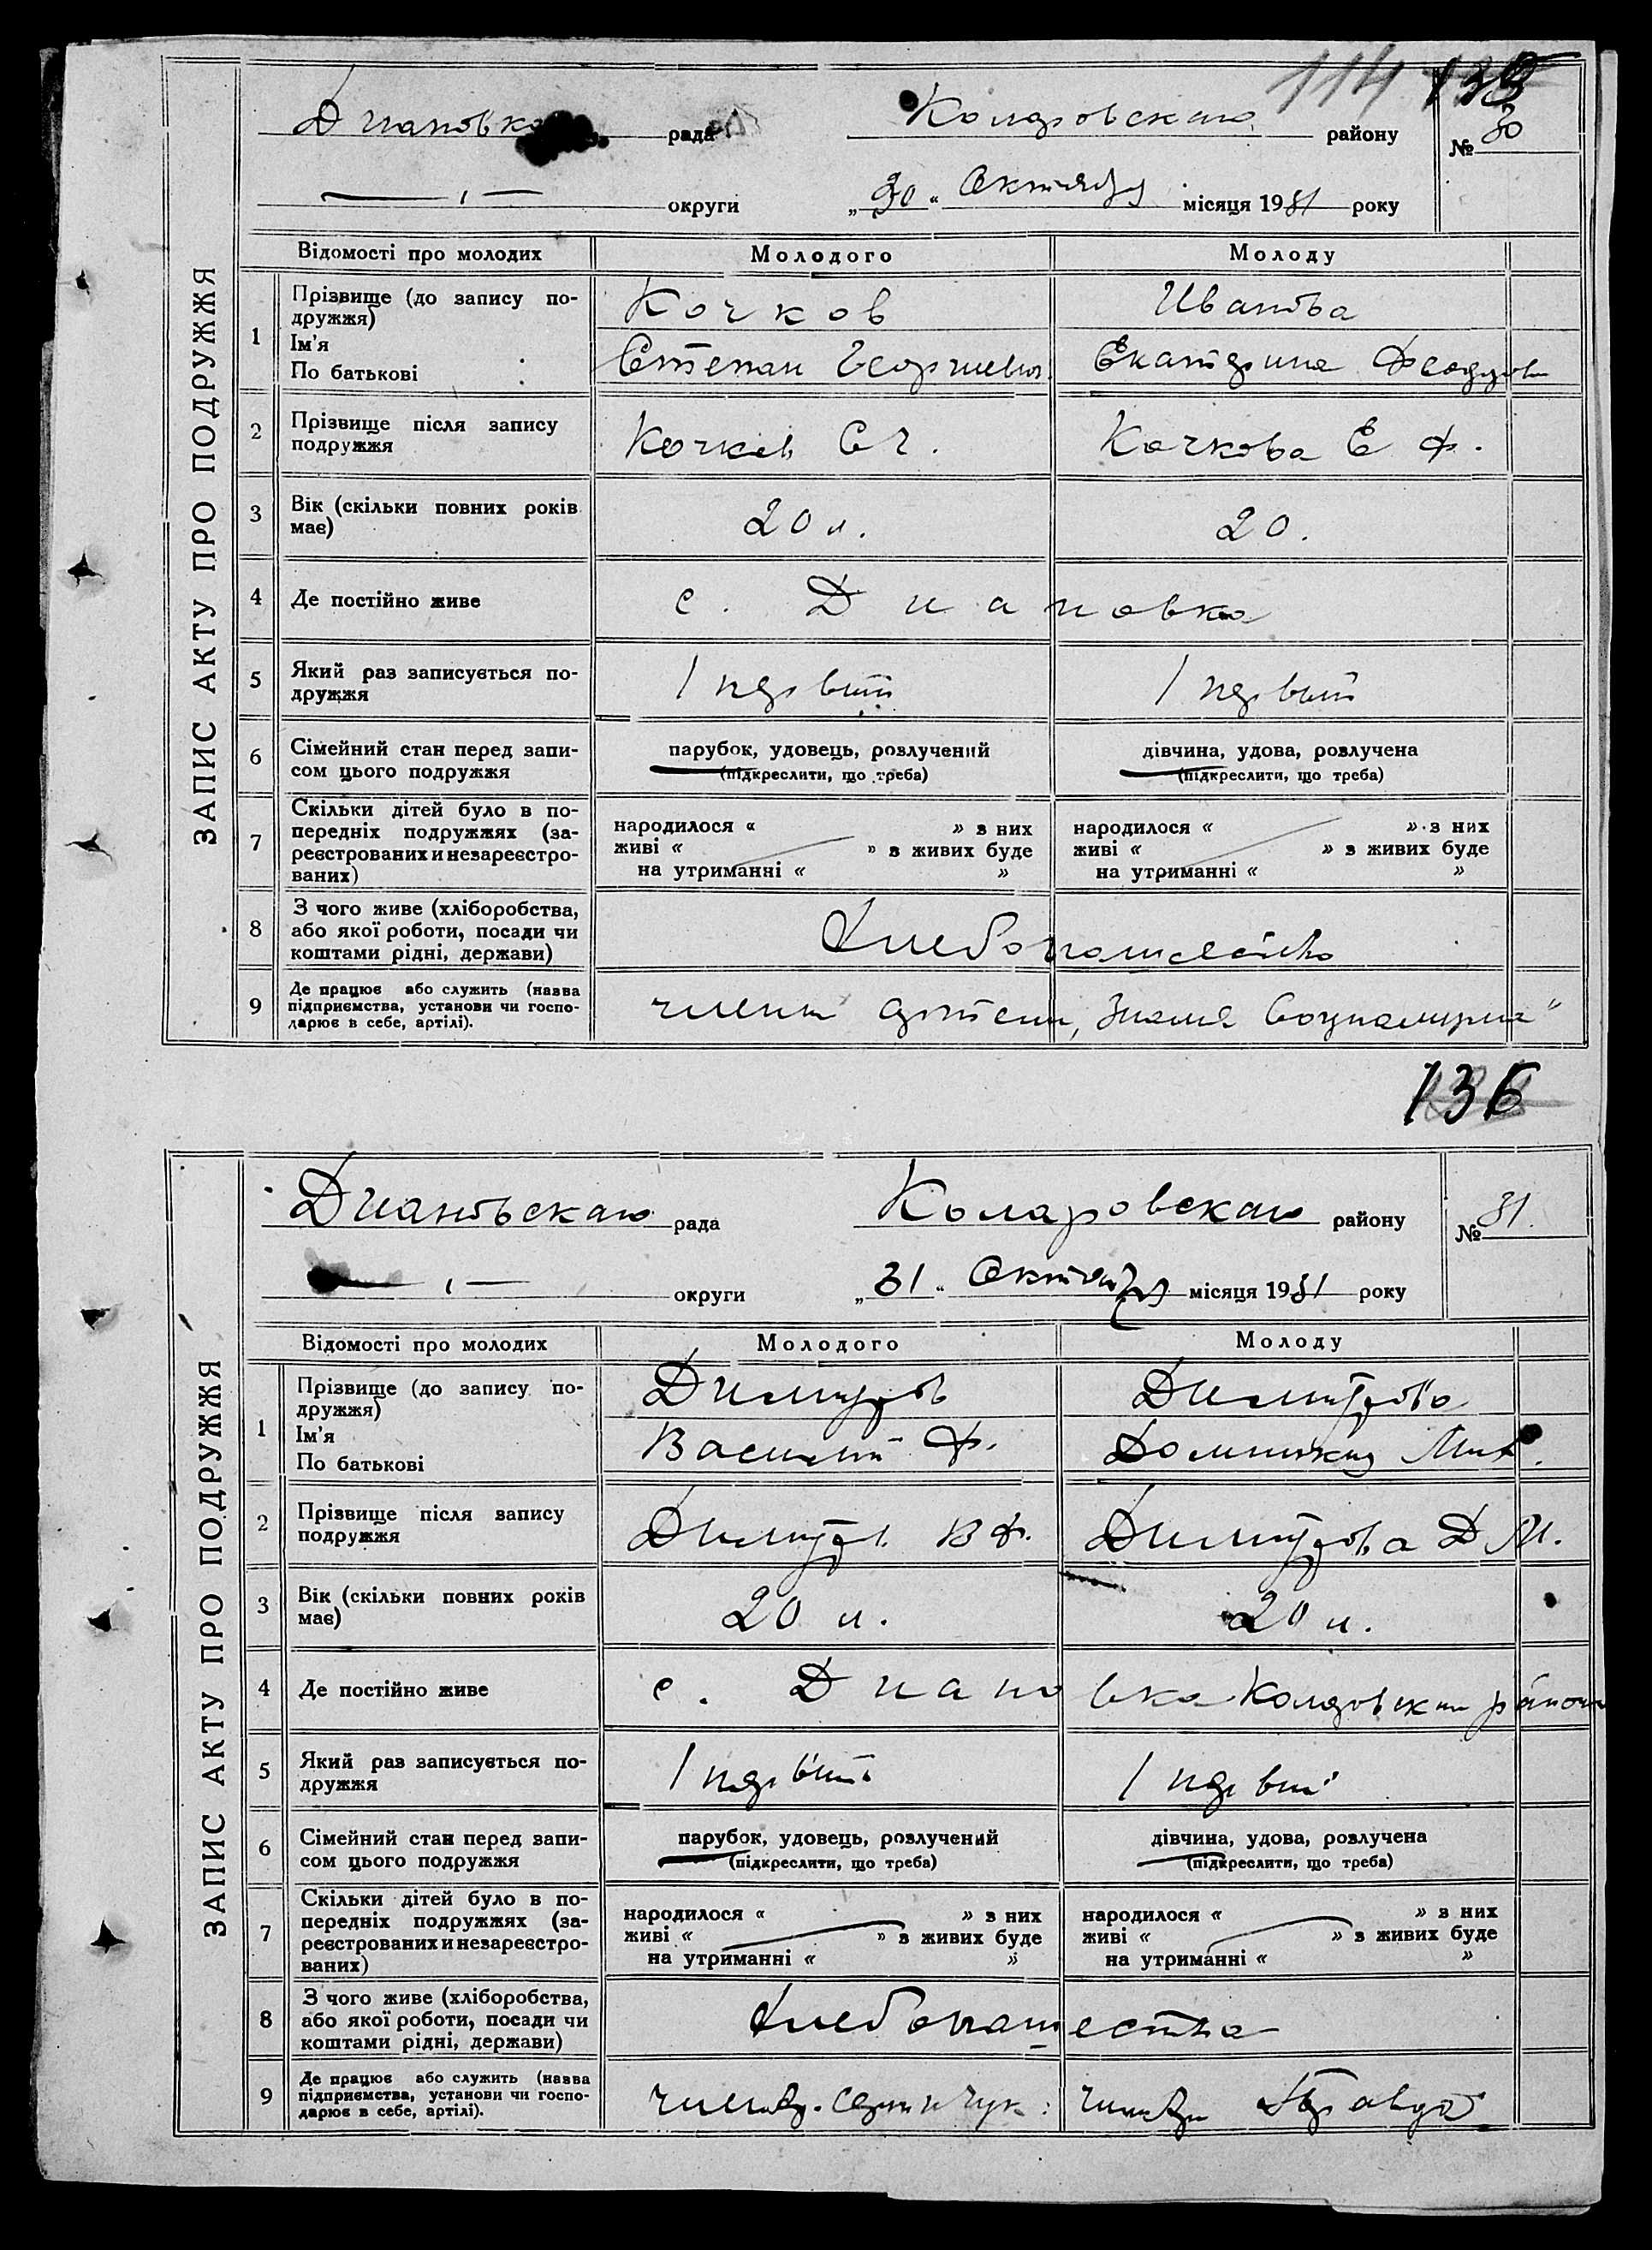 114
Диановка рада Коларовскаго району № 30
округи „30“ Октября місяця 1931 року
ЗАПИС АКТУ ПРО ПОДРУЖЖЯ
Відомості про молодих Молодого Молоду
1 Прізвище (до запису по-
дружжя) Кочков Иванова
Ім'я
По батькові Степан Георгиевич Екатерина Феодоров
2 Прізвище після запису
подружжя Кочков С Г. Кочкова Е Ф.
3 Вік (скільки повних років
має) 20 л. 20.
4 Де постійно живе с. Диановка
5 Який раз записується по-
дружжя 1 первый 1 первый
6 Сімейний стан перед запи-
сом цього подружжя парубок, удовець, розлучений дівчина, удова, розлучена
(підкреслити, що треба) (підкреслити, що треба)
7 Скільки дітей було в по-
передніх подружжях (за-
реєстрованих и незареєстро-
ваних)
народилося « » з них народилося « » з них
живі « » з живих буде живі « » з живих буде
на утриманні « » на утриманні « »
8 З чого живе (хліборобства,
або якої роботи, посади чи
коштами рідні, держави) Хлебопашество
9 Де працює або служить (назва
підприємства, установи чи госпо-
дарює в себе, артілі). члены артели „Знамя Социализма“
136
Диановскаго рада Коларовскаго району № 31.
округи „31“ Октября місяця 1931 року
ЗАПИС АКТУ ПРО ПОДРУЖЖЯ
Відомості про молодих Молодого Молоду
1 Прізвище (до запису по-
дружжя) Димитров Димитрова
Ім'я
По батькові Василий Ф. Домникия Мих.
2 Прізвище після запису
подружжя Димитров В Ф. Димитрова Д М.
3 Вік (скільки повних років
має) 20 л. 20 л.
4 Де постійно живе с. Диановка Коларовскаго района
5 Який раз записується по-
дружжя 1 первый 1 первый
6 Сімейний стан перед запи-
сом цього подружжя парубок, удовець, розлучений дівчина, удова, розлучена
(підкреслити, що треба) (підкреслити, що треба)
7 Скільки дітей було в по-
передніх подружжях (за-
реєстрованих и незареєстро-
ваних)
народилося « » з них народилося « » з них
живі « » з живих буде живі « » з живих буде
на утриманні « » на утриманні « »
8 З чого живе (хліборобства,
або якої роботи, посади чи
коштами рідні, держави) Хлебопашества
9 Де працює або служить (назва
підприємства, установи чи госпо-
дарює в себе, артілі). Правда